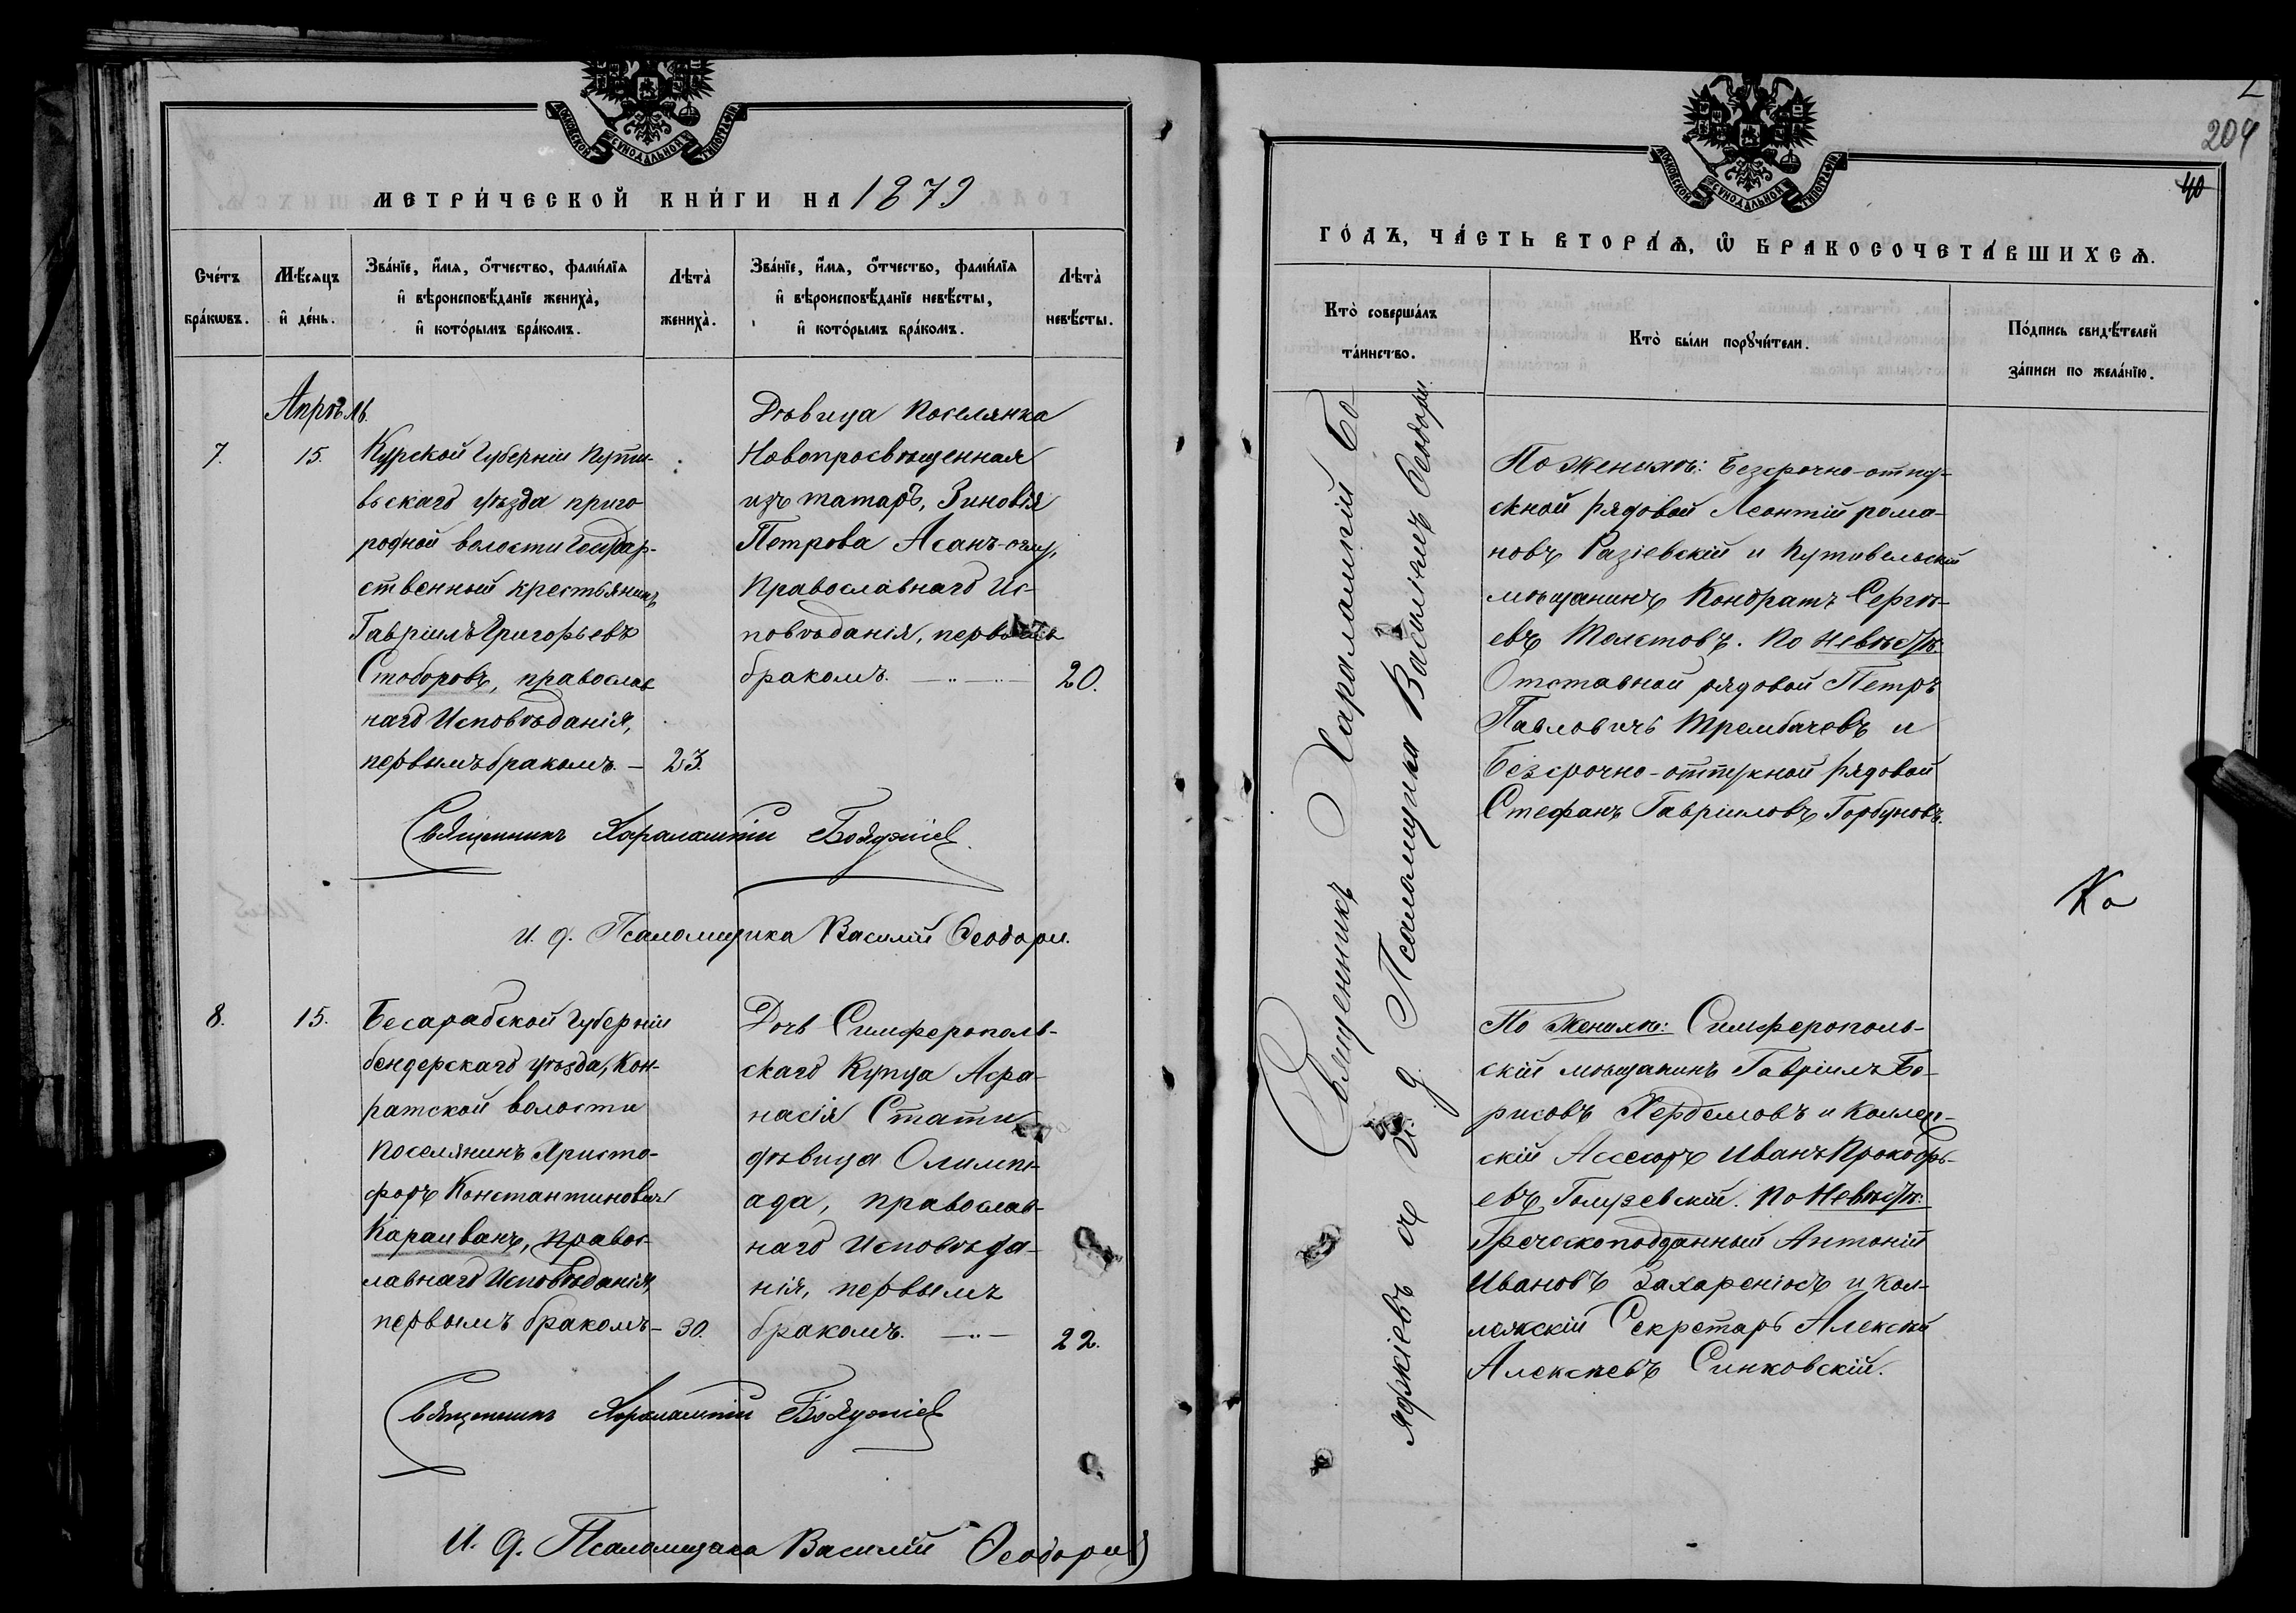 МОСКОВСКОЙ СѴНОДАЛЬНОЙ ТИПОГРАФІИ
МЕТРИ́ЧЕСКОЙ КНИ́ГИ НА 1879
Сче́тъ бра́кωвъ.
Мѣ́сяцъ и҆ де́нь.
Зва́нїе, и҆́мя, ѻ҆́тчество, фами́лїя
и҆ вѣроисповѣ́данїе жениха̀,
и҆ кото́рымъ бра́комъ.
Лѣта̀ жениха̀.
Зва́нїе, и҆́мя, ѻ҆́тчество, фами́лїя
и҆ вѣроисповѣ́данїе невѣ́сты,
и҆ кото́рымъ бра́комъ.
Лѣта̀ невѣ́сты.
Апрѣль.
7.
15.
Курской Губерніи Пути-
вьскаго уѣзда приго
родной волости Государ-
ственный крестьянинъ
Гавріилъ Григорьевъ
Стоборовъ, православ
наго Исповѣданія,
первымъ бракомъ. —
23.
Дѣвица Поселянка
Новопросвѣщенная
изъ татаръ, Зиновія
Петрова Асанъ-
Православнаго Ис-
повѣданія, первымъ
бракомъ.
20.
Священникъ Харалампій Бояджіев
И. д. Псаломщика Василій Ѳеодори.
8.
15.
Бесарабской Губерніи
бендерскаго уѣзда, Кон-
ратской волости
поселянинъ Христо-
форъ Константиновъ
Караиванъ, правос-
лавнаго Исповѣданія,
первымъ бракомъ —
30.
Дочь Симферополь-
скаго Купца Афа-
насія Стати
дѣвица Олимпі-
ада, православ-
наго Исповѣда-
нія, первымъ
бракомъ.
22.
Священникъ Харалампій Бояджіев
И. д. Псаломщика Василій Ѳеодори
МОСКОВСКОЙ СѴНОДАЛЬНОЙ ТИПОГРАФІИ
204
40
ГО́ДЪ, ЧА́СТЬ ВТОРА́Ѧ, Ѽ БРАКОСОЧЕТА́ВШИХСѦ.
Кто̀ соверша́лъ
та́инство.
Кто̀ бы́ли порꙋчи́тели.
По́дпись свидѣ́телей
за́писи по жела́нїю.
Священникъ Харалампій Бо-
яджіевъ съ И. д. Псаломщика Василіемъ Ѳеодори.
По женихѣ: Безсрочно-отпу-
скной рядовой Леонтій рома-
новъ Разіевскій и Путивельскій
мѣщанинъ Кондратъ Сергѣ-
евъ Толстовъ. По Невѣстѣ:
Отставной рядовой Петръ
Павловичъ Трембачевъ и
Безсрочно-отпускной рядовой
Стефанъ Гавріиловъ Горбуновъ.
По Женихѣ: Симферополь-
скій мѣщанинъ Гавріилъ Бо-
рисовъ и Коллеж-
скій Асесоръ Иванъ Прокофь-
евъ. По Невѣстѣ:
Греческоподданный Антоній
Ивановъ Захареніосъ и Кол-
лежскій Секретарь Алексѣй
Алексѣевъ Синковскій.